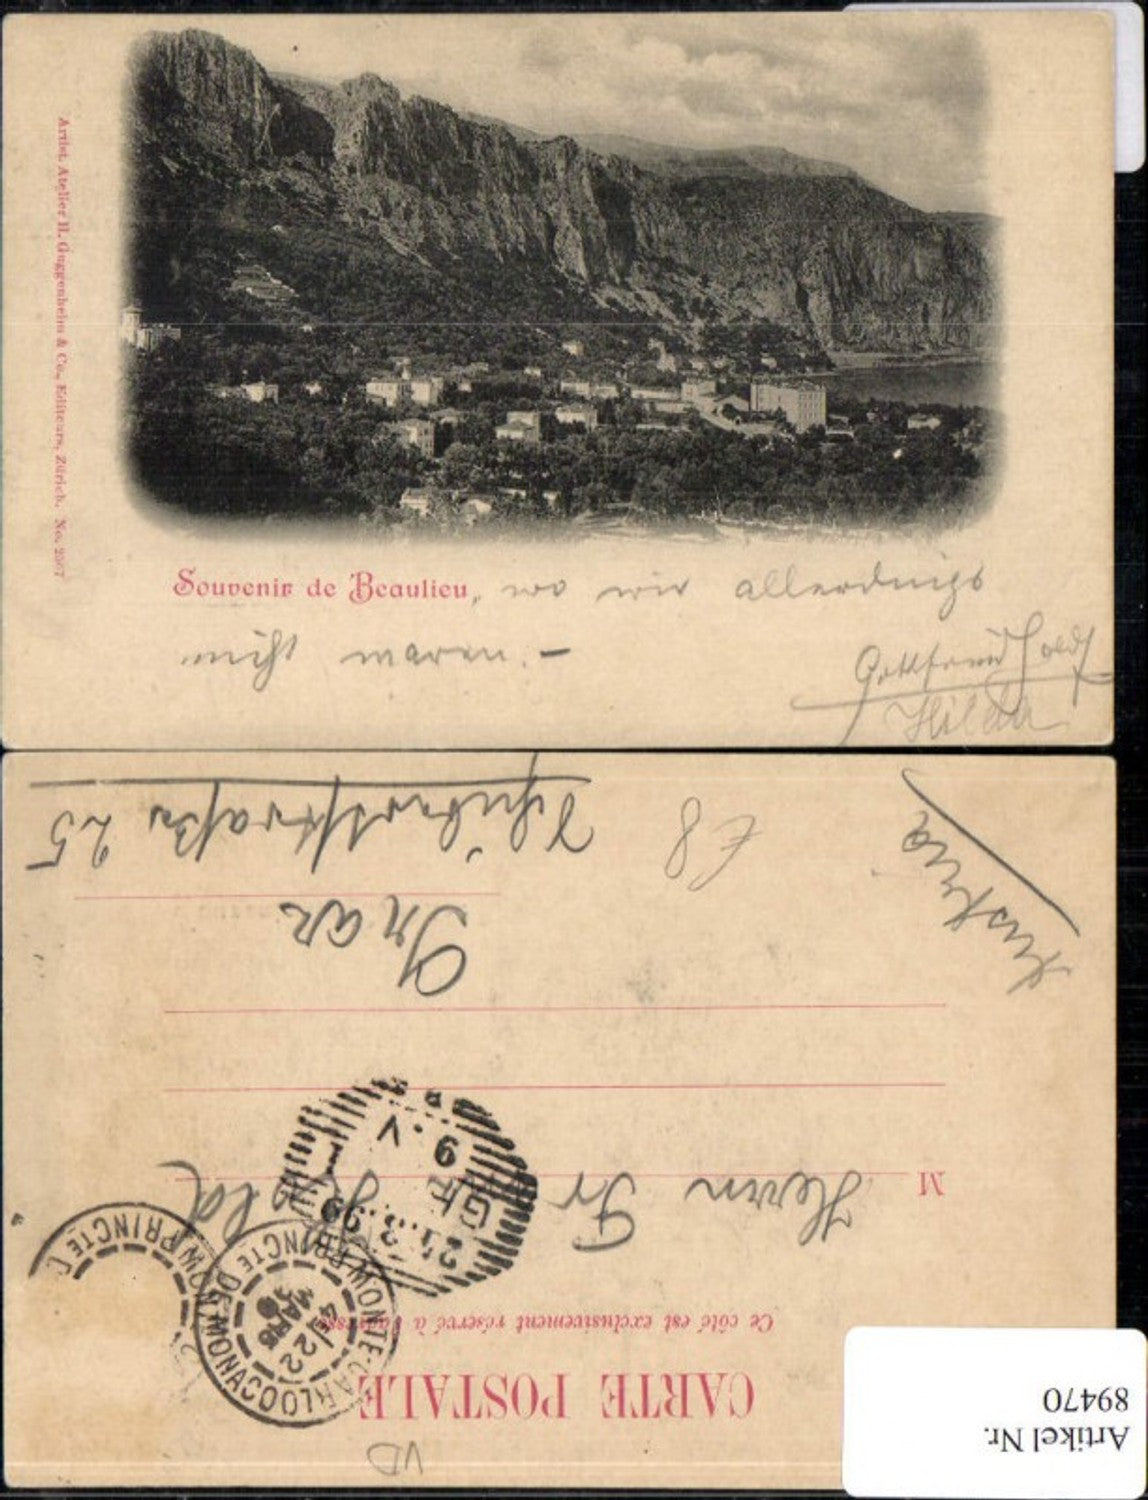 Artist. Atelier H. Guggenheim & Co., Editeurs, Zürich. No. 2507
Souvenir de Beaulieu, wo wir allerdings
nicht waren. –
Gottfried
Hilda
CARTE POSTALE
Ce côté est exclusivement réservé à l'adresse
M Herrn Dr
Graz
straße 25
Austria
£8
VD
MONTE-CARLO PRINCTE DE MONACO
4E/22
MARS
99
MONTE-CARLO PRINCTE
9.V
99
Artikel Nr.
89470